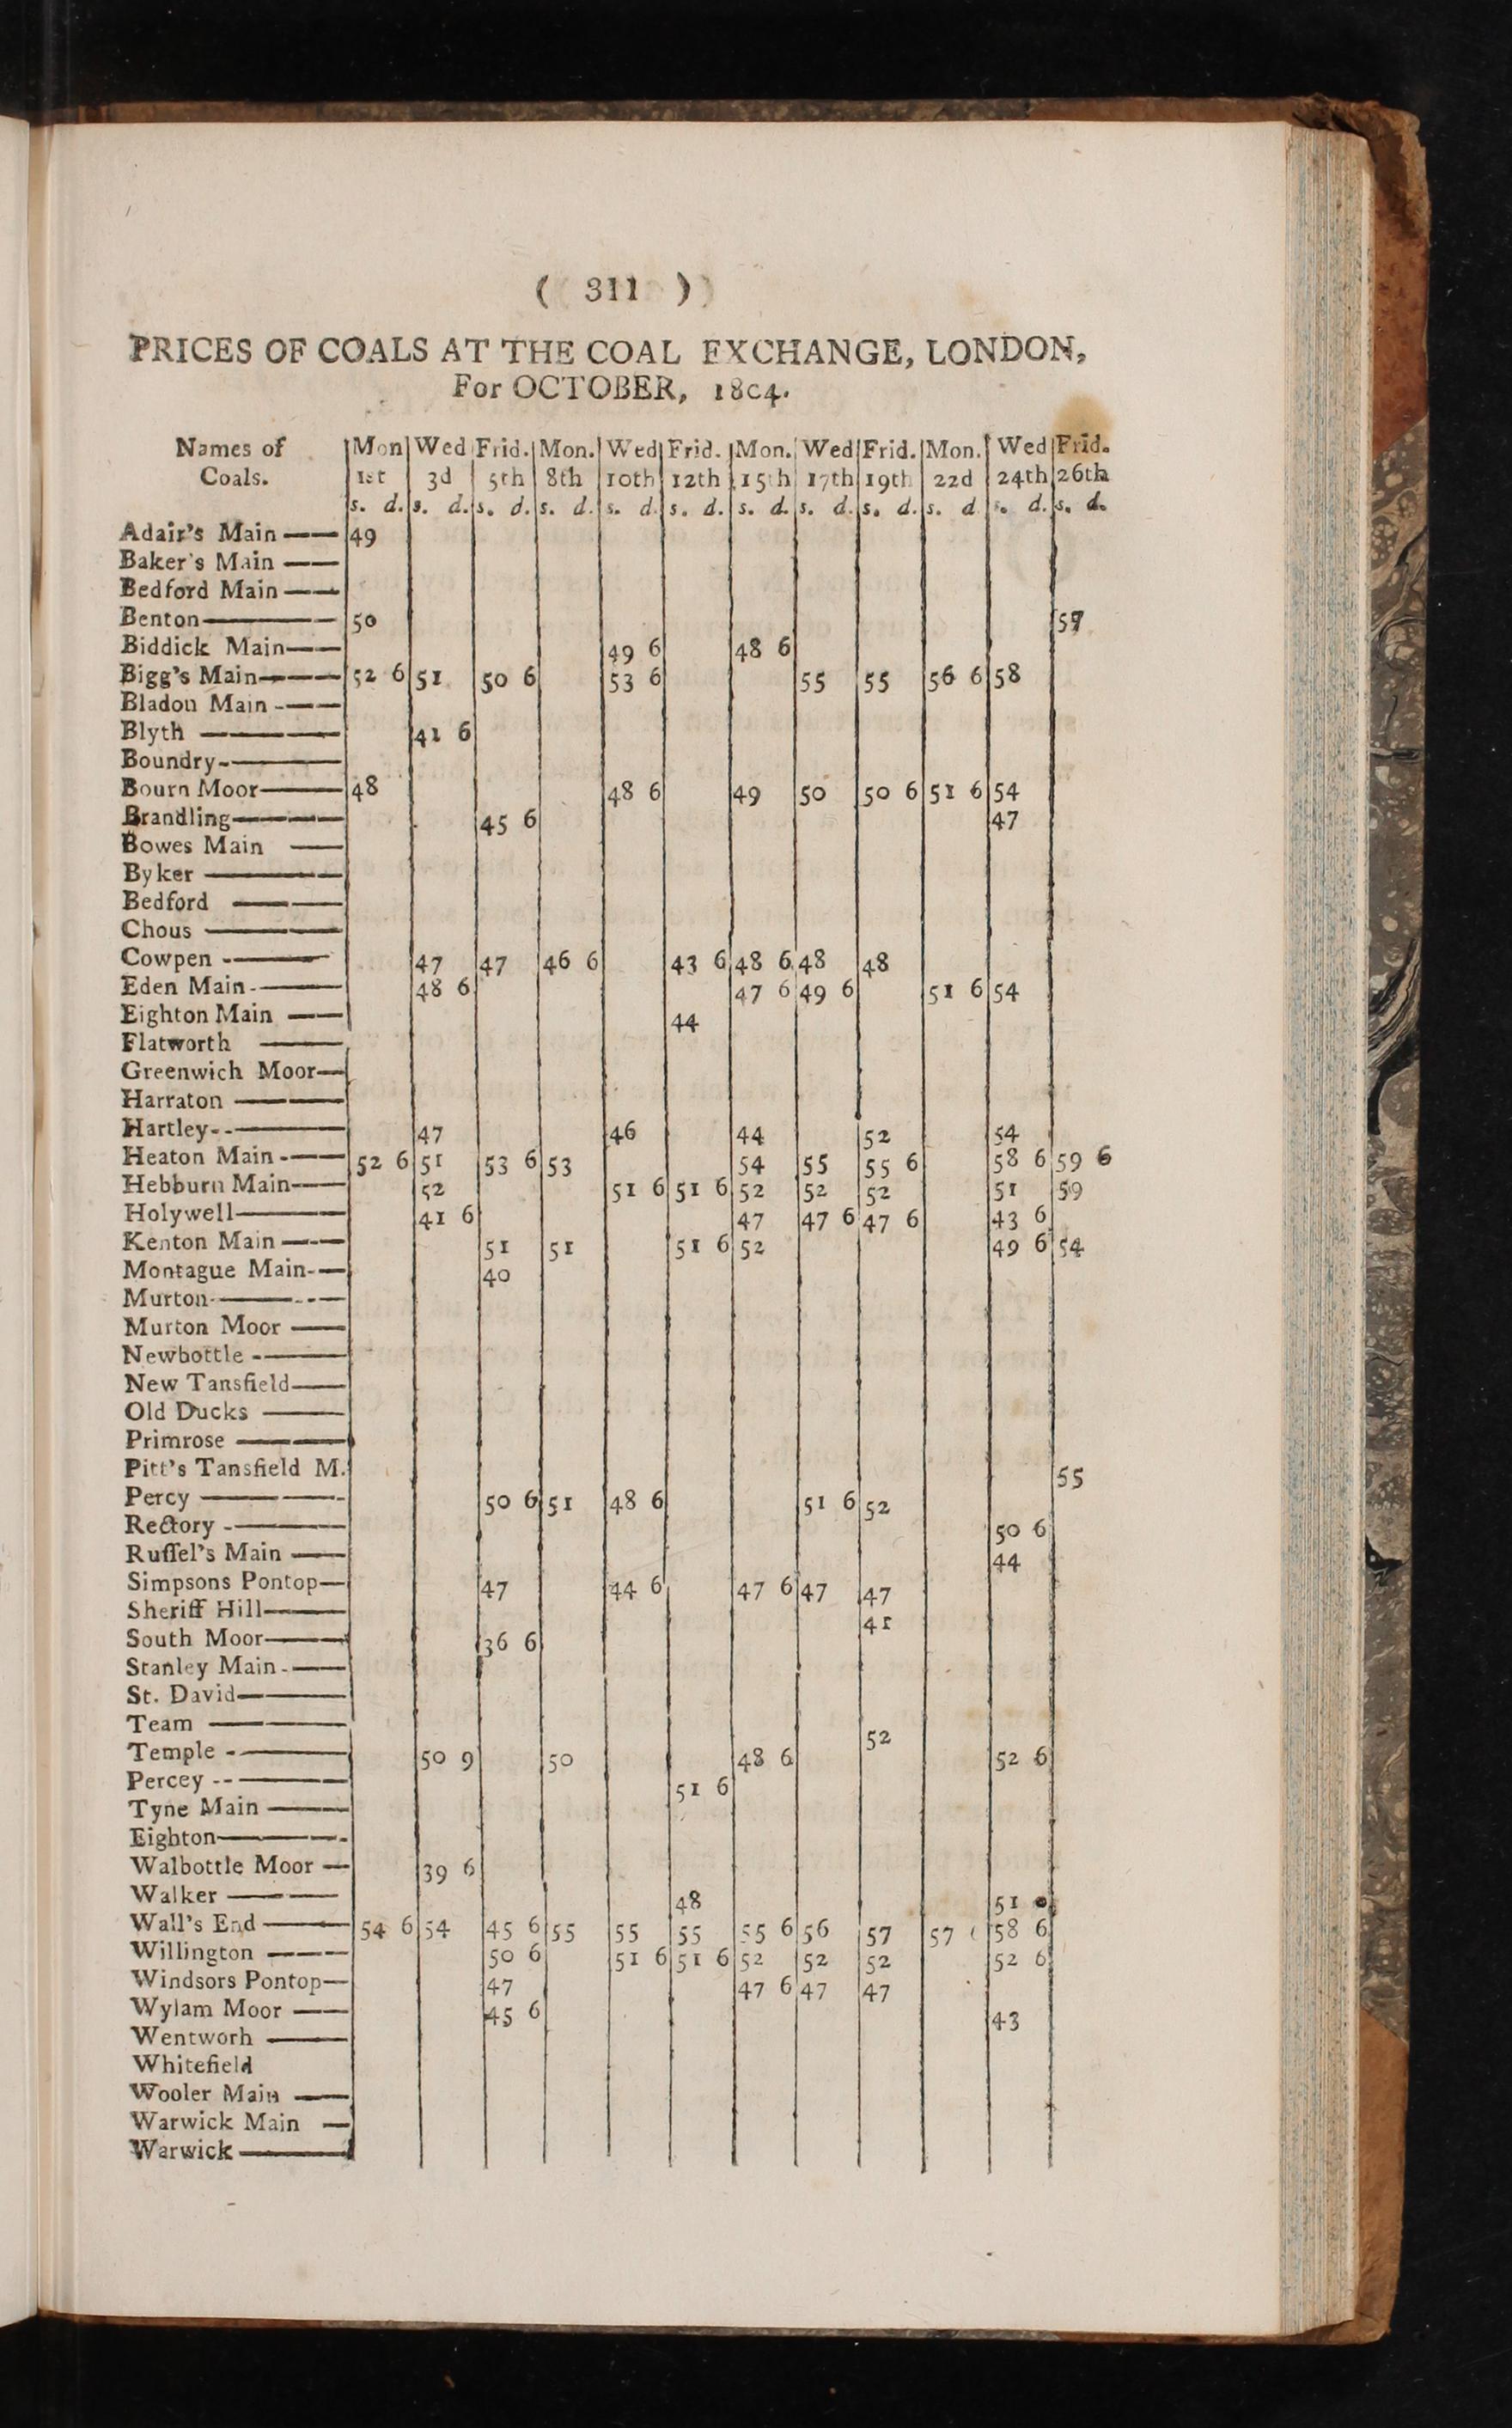 ( 311 )
PRICES OF COALS AT THE COAL EXCHANGE, LONDON,
For OCTOBER, 18c4.
Names of Mon Wed Frid. Mon. Wed Frid. Mon. Wed Frid. Mon. Wed Frid.
Coals. 1st 3d 5th 8th 10th 12th 15th 17th 19th 22d 24th 26th
s. d. s. d. s. d. s. d. s. d. s. d. s. d. s. d. s. d. s. d. s. d. s. d.
Adair's Main —— 49
Baker's Main ——
Bedford Main ——
Benton———— 50 57
Biddick Main—— 49 6 48 6
Bigg's Main——— 52 6 51 50 6 53 6 55 55 56 6 58
Bladon Main -——
Blyth ———— 41 6
Boundry-———
Bourn Moor——— 48 48 6 49 50 50 6 51 6 54
Brandling———— 45 6 47
Bowes Main ——
Byker ————
Bedford ———
Chous ————
Cowpen -——— 47 47 46 6 43 6 48 6 48 48
Eden Main-——— 48 6 47 6 49 6 51 6 54
Eighton Main —— 44
Flatworth ———
Greenwich Moor—
Harraton ———
Hartley--——— 47 46 44 52 54
Heaton Main -—— 52 6 51 53 6 53 54 55 55 6 58 6 59 6
Hebburn Main-—— 52 51 6 51 6 52 52 52 51 59
Holywell———— 41 6 47 47 6 47 6 43 6
Kenton Main —-— 51 51 51 6 52 49 6 54
Montague Main-— 40
Murton-———--—
Murton Moor ——
Newbottle -———
New Tansfield——
Old Ducks ———
Primrose ————
Pitt's Tansfield M. 55
Percy ————- 50 6 51 48 6 51 6 52
Rectory -———— 50 6
Ruſſel's Main —— 44
Simpsons Pontop— 47 44 6 47 6 47 47
Sheriff Hill——— 41
South Moor——— 36 6
Stanley Main-——
St. David————
Team ———— 52
Temple -———— 50 9 50 48 6 52 6
Percey --———— 51 6
Tyne Main ———
Eighton————-
Walbottle Moor — 39 6
Walker ———— 48 51
Wall's End ——— 54 6 54 45 6 55 55 55 55 6 56 57 57 58 6
Willington ——— 50 6 51 6 51 6 52 52 52 52 6
Windsors Pontop— 47 47 6 47 47
Wylam Moor —— 45 6 43
Wentworh ———
Whitefield
Wooler Main ——
Warwick Main —
Warwick————